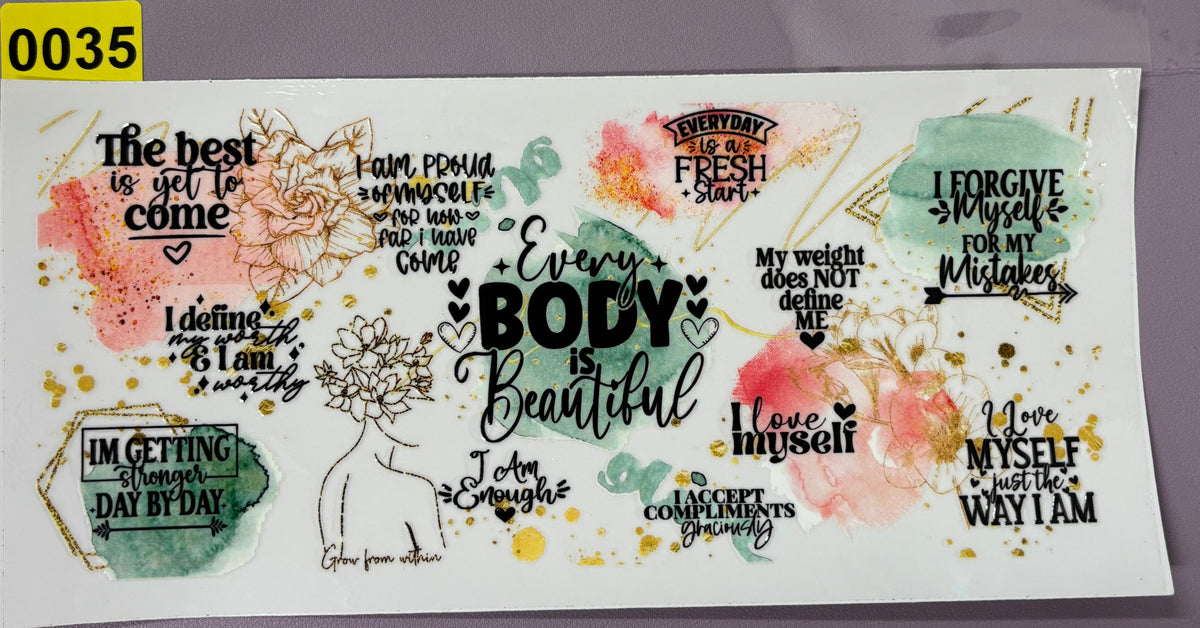 0035
The best
is yet to
come
I am PROUD
of myself
for how
far i have
come
EVERYDAY
is a
FRESH
Start
I FORGIVE
Myself
FOR MY
Mistakes
Every
BODY
is
Beautiful
My weight
does NOT
define
ME
I define
my worth
& I am
worthy
IM GETTING
stronger
DAY BY DAY
Grow from within
I Am
Enough
I ACCEPT
COMPLIMENTS
graciously
I love
myself
I Love
MYSELF
just the
WAY I AM